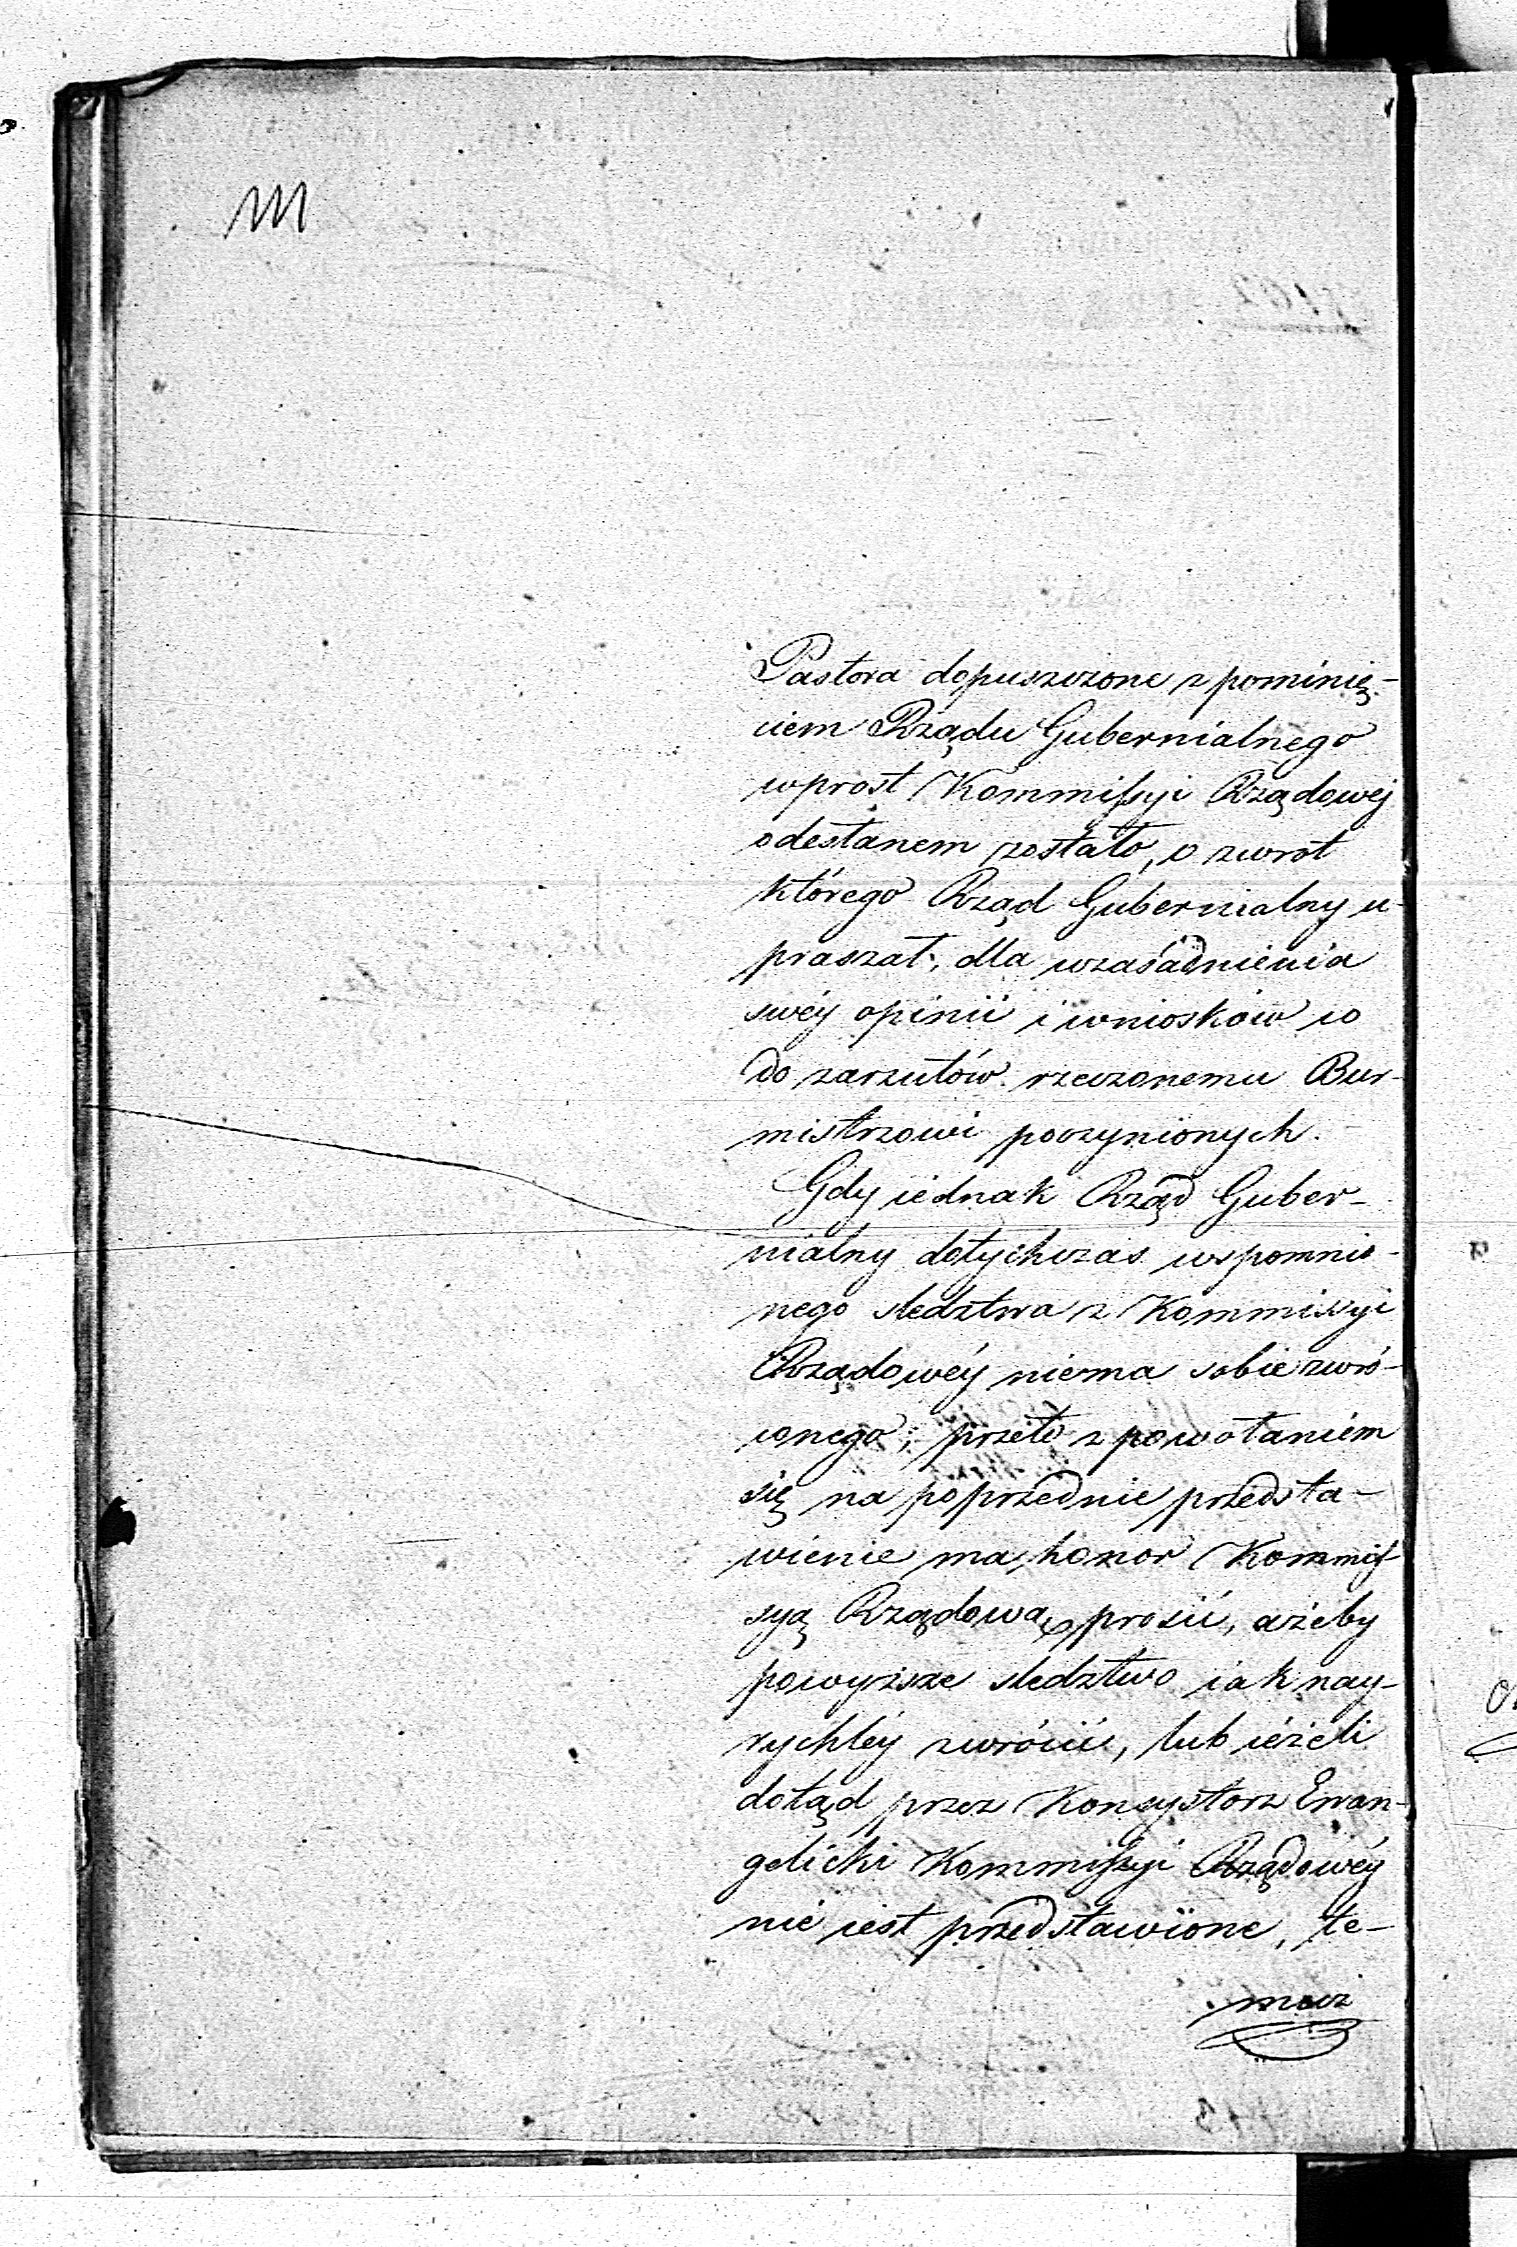 Pastora dopuszczone z pominię-
ciem Rządu Gubernialnego
wprost Kommissyi Rządowej
odesłanem zostało, o zwrot
którego Rząd Gubernialny u-
praszał, dla uzasadnienia
swéy opinii i wniosków co
do zarzutów rzeczonemu Bur-
mistrzowi poczynionych.
Gdy iednak Rząd Guber-
nialny dotychczas wspomnio-
nego sledztwa z Kommissyi
Rządowéy niema sobie zwró-
conego; przeto z powołaniem
się na poprzednie przedsta-
wienie ma honor Kommis-
syą Rządową prosić, ażeby
powyższe sledztwo iak nay-
rychléy zwrócić, lub ieżeli
dotąd przez Konsystorz Ewan-
gelicki Kommissyi Rządowéy
nie iest przedstawione, te-
muż